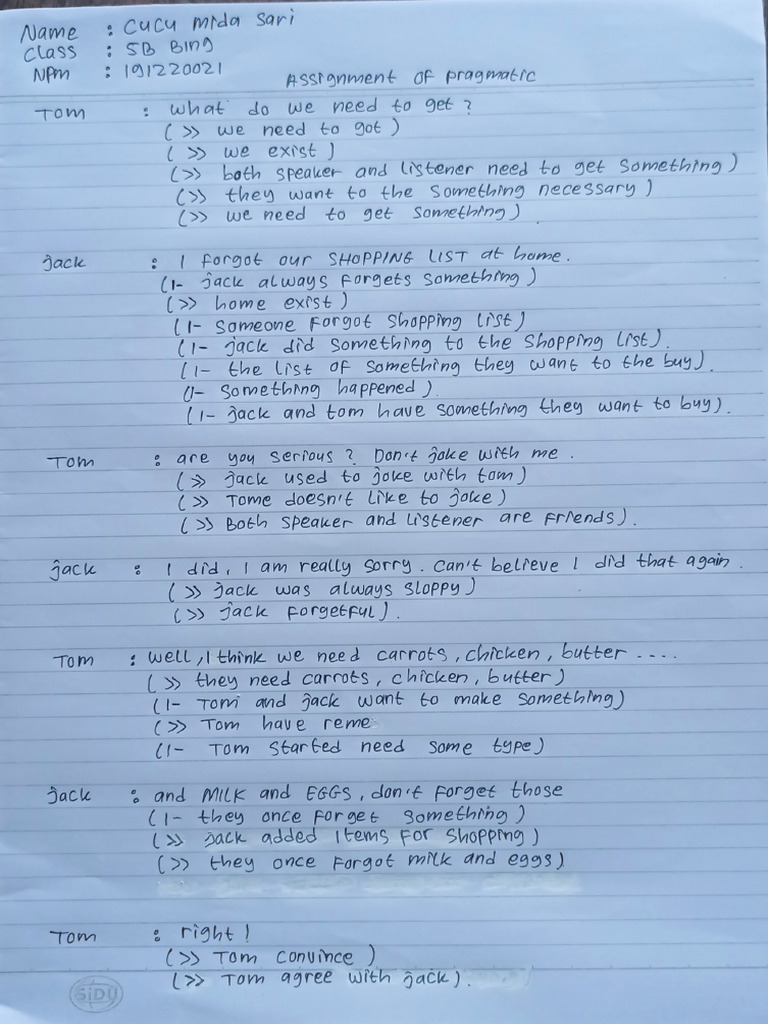 Name : Cucu Mida Sari
Class : 5B Bing
NPM : 191220021
Assignment of pragmatic
Tom : what do we need to get ?
( >> we need to got )
( >> we exist )
( >> both speaker and listener need to get something )
( >> they want to the something necessary )
( >> we need to get something )
jack : I forgot our SHOPPING LIST at home.
(1- jack always forgets something )
( >> home exist )
(1- someone forgot shopping list )
(1- jack did something to the shopping list ).
(1- the list of something they want to the buy ).
(1- something happened ).
(1- jack and tom have something they want to buy ).
Tom : are you serious ? Don't joke with me .
( >> jack used to joke with tom )
( >> Tome doesn't like to joke )
( >> Both speaker and listener are friends ).
jack : I did, I am really sorry . can't believe I did that again .
( >> jack was always sloppy )
( >> jack forgetful ).
Tom : well, I think we need carrots, chicken, butter ....
( >> they need carrots, chicken, butter )
(1- Tom and jack want to make something)
( >> Tom have reme
(1- Tom started need some type )
jack : and MILK and EGGS, don't forget those
(1- they once forget something )
( >> jack added items for shopping )
( >> they once forgot milk and eggs )
Tom : right !
( >> Tom convince )
( >> Tom agree with jack ).
SiDU